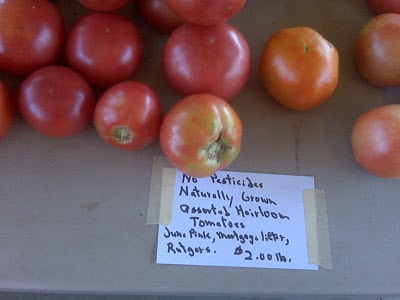 No Pesticides
Naturally Grown
assorted Heirloom
Tomatoes
June Pink, mortgage lifter,
Rutgers. $2.00 lb.